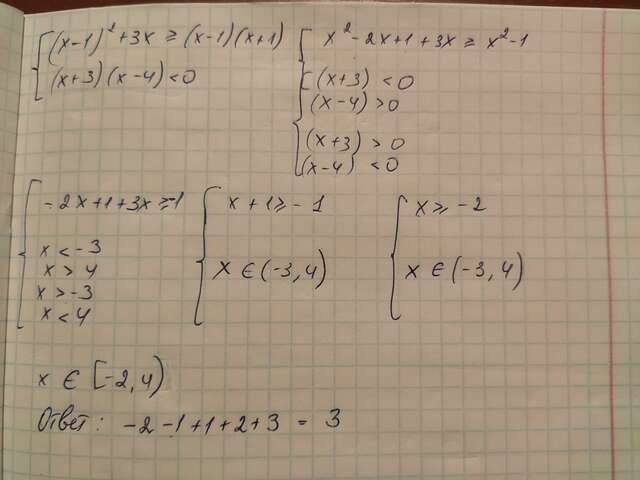 (x-1)² + 3x ≥ (x-1)(x+1)
(x+3)(x-4) < 0
x² - 2x + 1 + 3x ≥ x² - 1
(x+3) < 0
(x-4) > 0
(x+3) > 0
(x-4) < 0
-2x+1+3x ≥ -1
x < -3
x > 4
x > -3
x < 4
x + 1 ≥ -1
x ∈ (-3, 4)
x ≥ -2
x ∈ (-3, 4)
x ∈ [-2, 4)
Ответ: -2 -1 +1 +2 +3 = 3